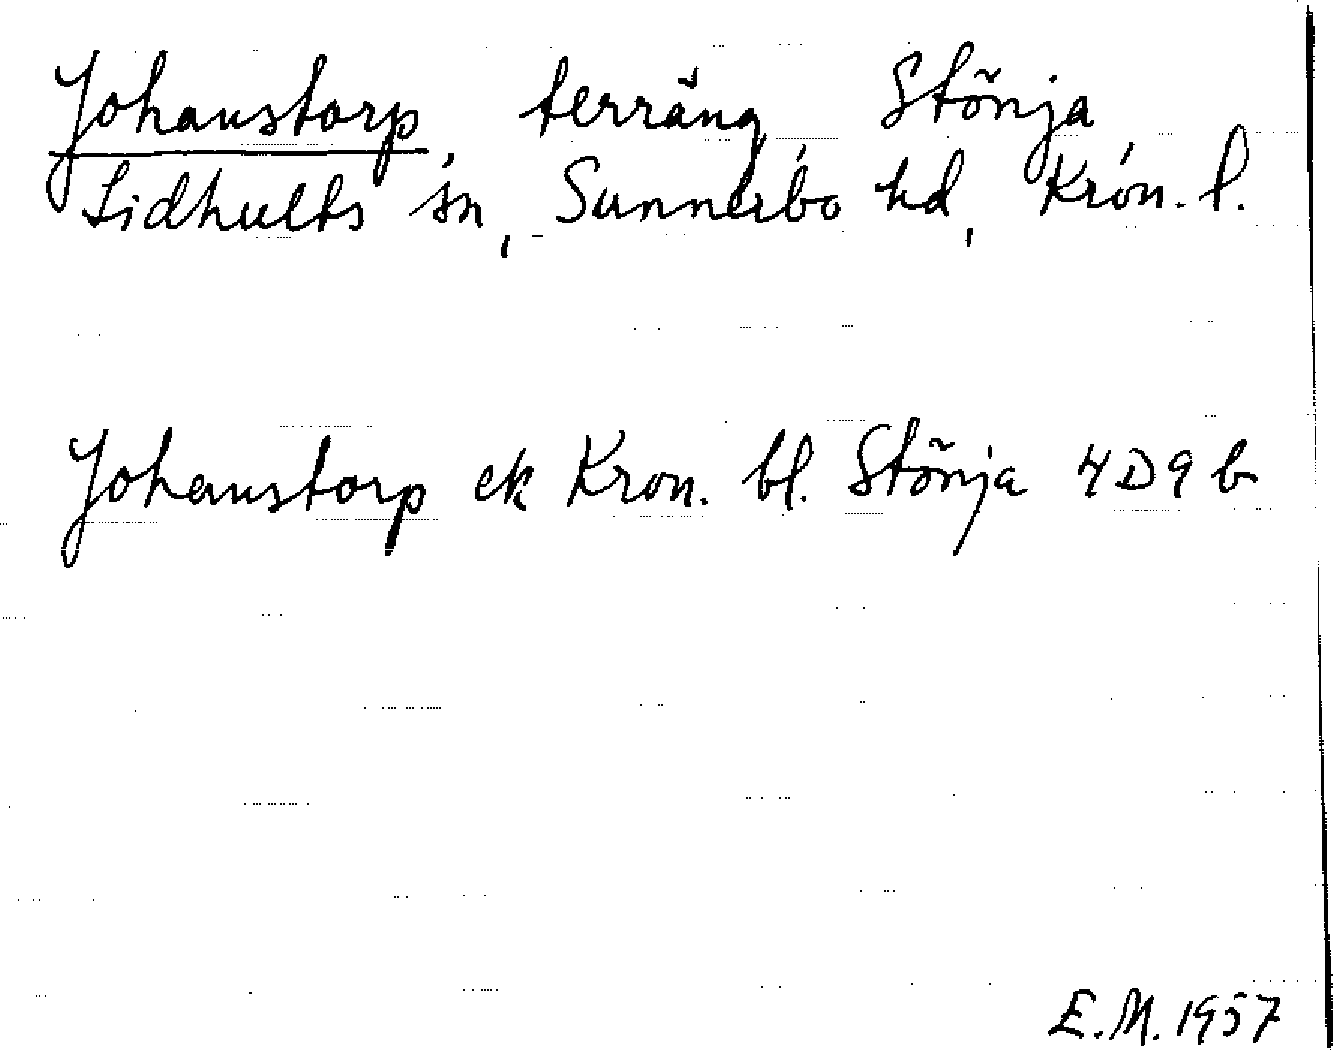 Johanstorp, terräng Stönja
Lidhults sn, Sunnerbo hd, Kron. l.
Johanstorp ek Kron. bl. Stönja 4D9b
E.M. 1957